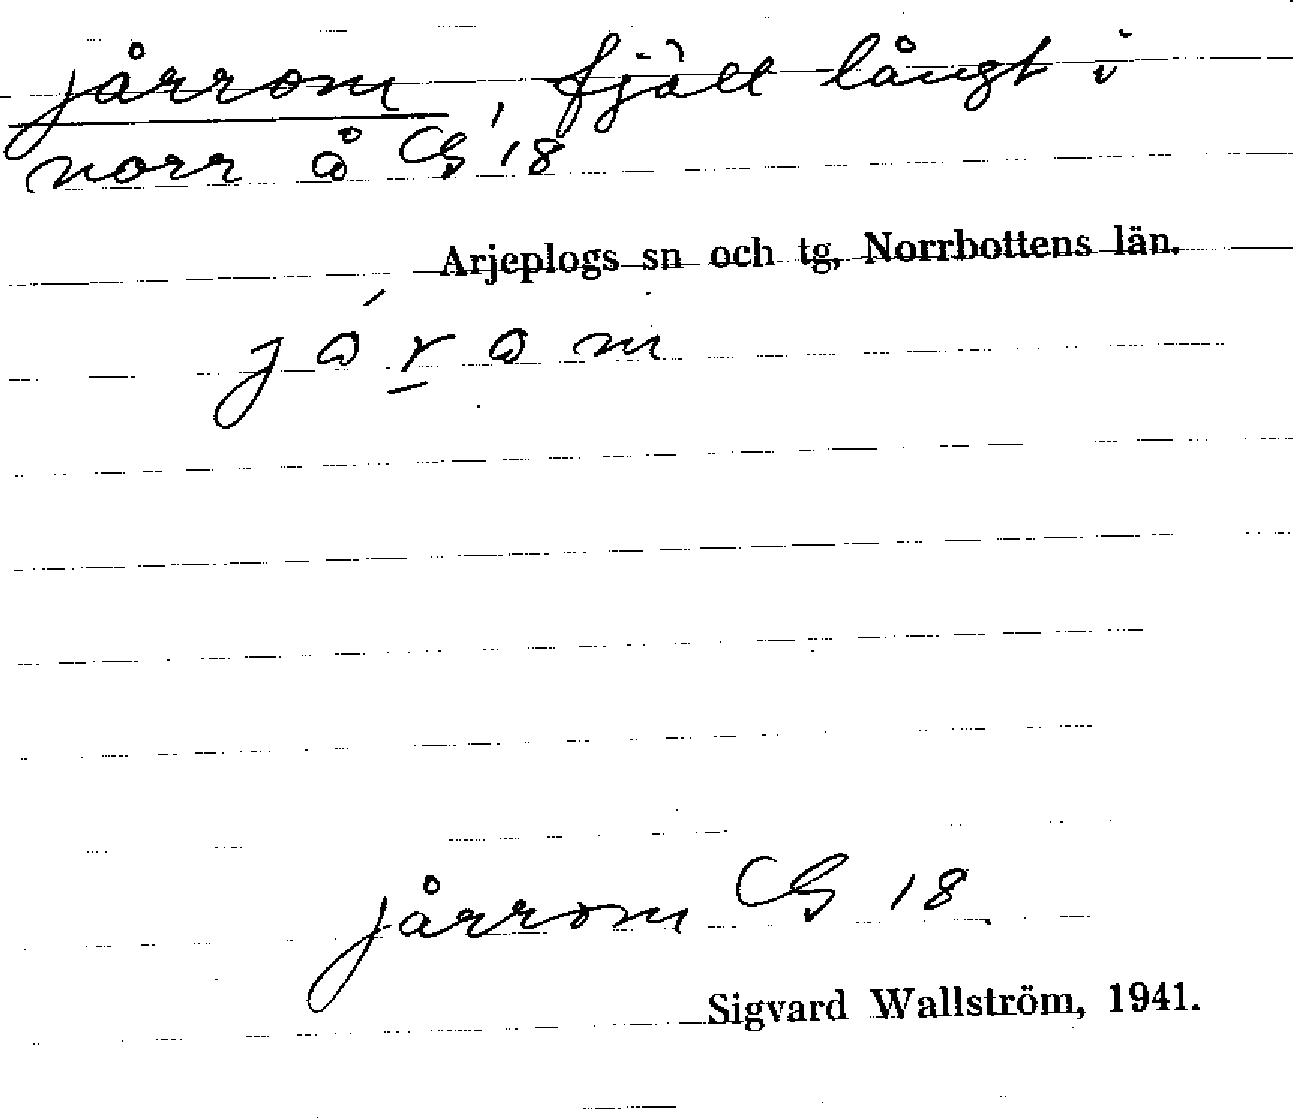 jårrom, fjäll långt i
norr å CG 18
Arjeplogs sn och tg, Norrbottens län.
jårrom CG 18
Sigvard Wallström, 1941.